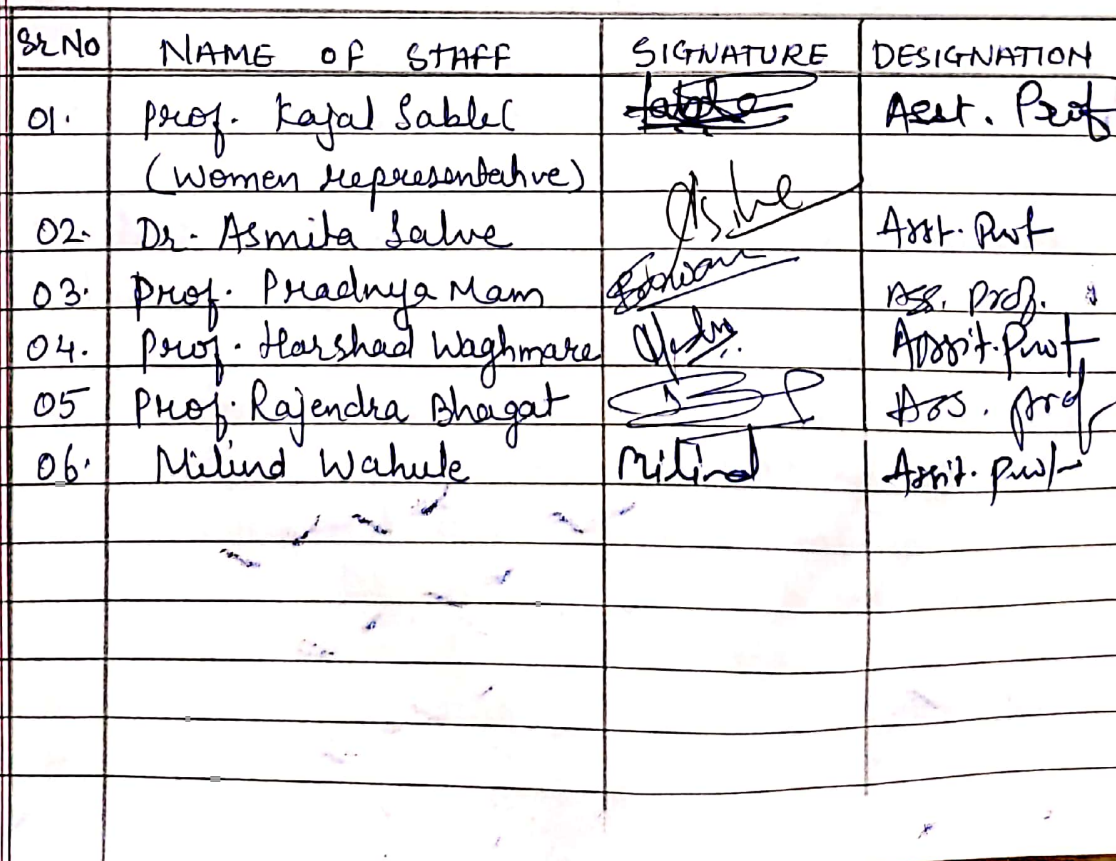 Sr No NAME OF STAFF SIGNATURE DESIGNATION
01. Prof. Kajal Sable( Asst. Prof
(Women representative)
02. Dr. Asmita Salve Asst. Prof
03. Prof. Pradnya Mam Ass. Prof.
04. Prof. Harshad Waghmare Assit. Prof
05 Prof. Rajendra Bhagat Ass. Prof
06. Milind Wahule Milind Assit. Prof